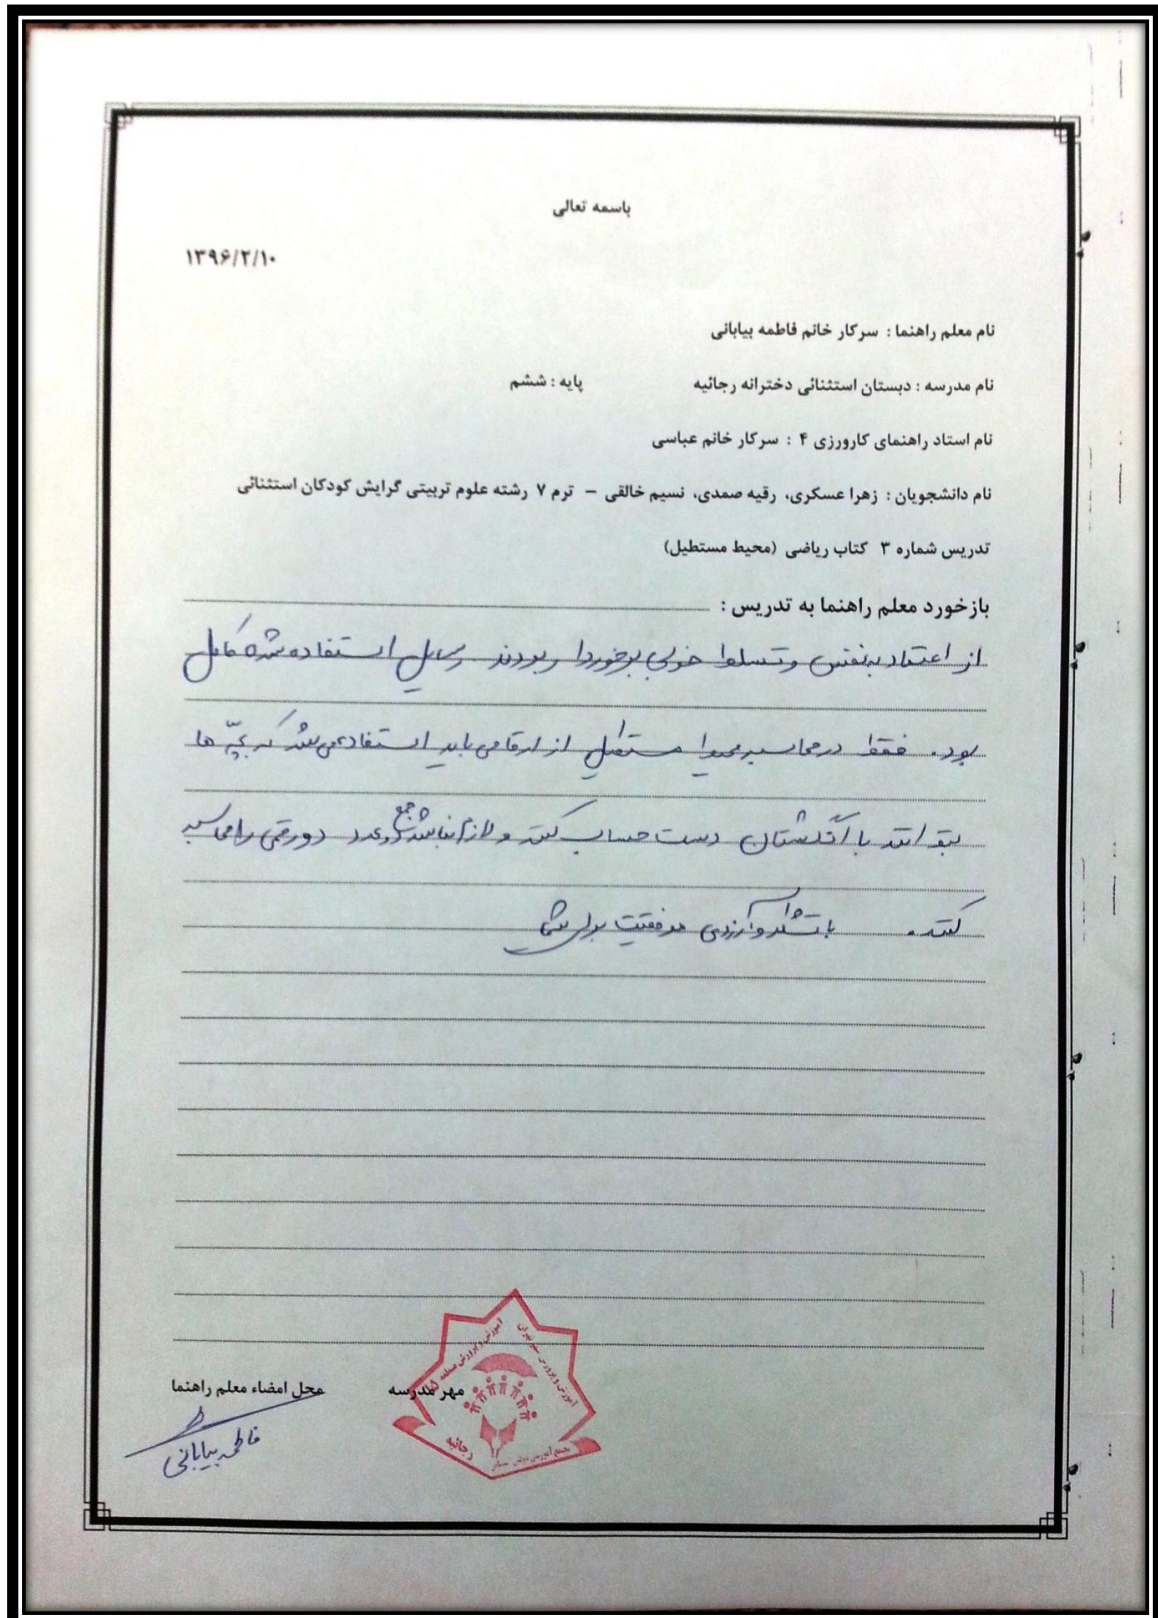 باسمه تعالی
۱۳۹۶/۲/۱۰
نام معلم راهنما : سرکار خانم فاطمه بیابانی
نام مدرسه : دبستان استثنائی دخترانه رجائیه پایه : ششم
نام استاد راهنمای کارورزی ۴ : سرکار خانم عباسی
نام دانشجویان : زهرا عسکری، رقیه صمدی، نسیم خالقی – ترم ۷ رشته علوم تربیتی گرایش کودکان استثنائی
تدریس شماره ۳ کتاب ریاضی (محیط مستطیل)
بازخورد معلم راهنما به تدریس :
از اعتماد بنفس و تسلط خوبی برخوردار بودند وسایل استفاده شده کامل
بود. فقط در محاسبه محیط مستطیل از ارقامی باید استفاده می شد که بچّه ها
بتوانند با انگشتان دست حساب کنند و لازم نباشد جمع دو عدد دو رقمی را محاسبه
کنند. با تشکر و آرزوی موفقیت برای شما
مهر مدرسه
محل امضاء معلم راهنما
فاطمه بیابانی
آموزش و پرورش شهر تهران
آموزش و پرورش منطقه ۱۵
رجائیه